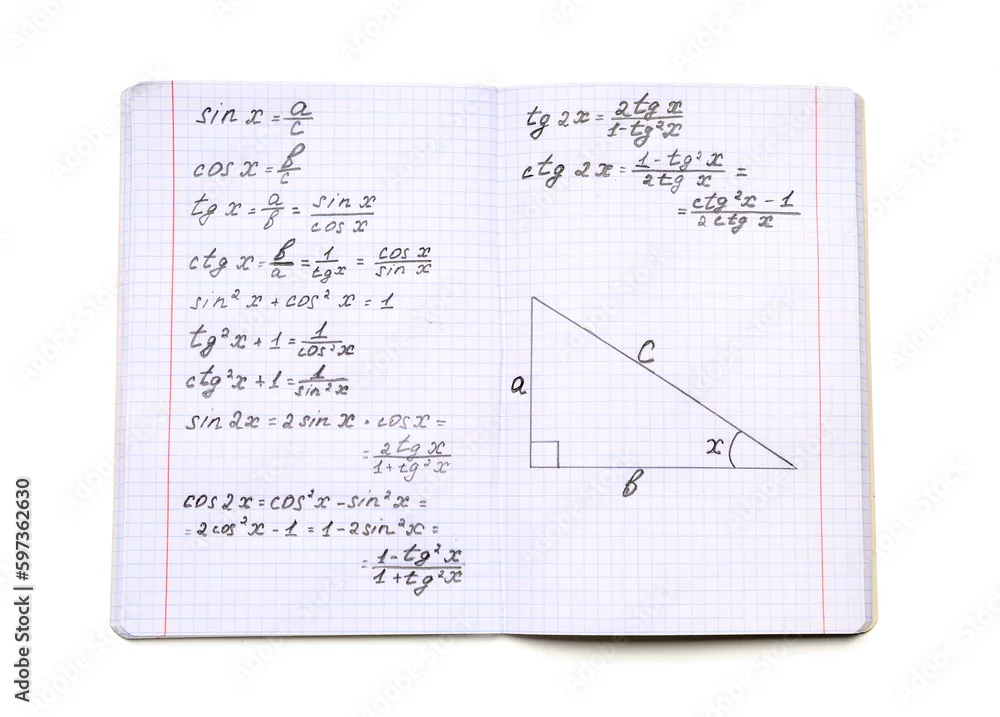 sin x = a/c
cos x = b/c
tg x = a/b = sin x/cos x
ctg x = b/a = 1/tg x = cos x/sin x
sin² x + cos² x = 1
tg² x + 1 = 1/cos² x
ctg² x + 1 = 1/sin² x
sin 2x = 2 sin x · cos x =
= 2 tg x/1 + tg² x
cos 2x = cos² x - sin² x =
= 2 cos² x - 1 = 1 - 2 sin² x =
= 1 - tg² x/1 + tg² x
tg 2x = 2 tg x/1 - tg² x
ctg 2x = 1 - tg² x/2 tg x =
= ctg² x - 1/2 ctg x
c
a
x
b
Adobe Stock | #597362630